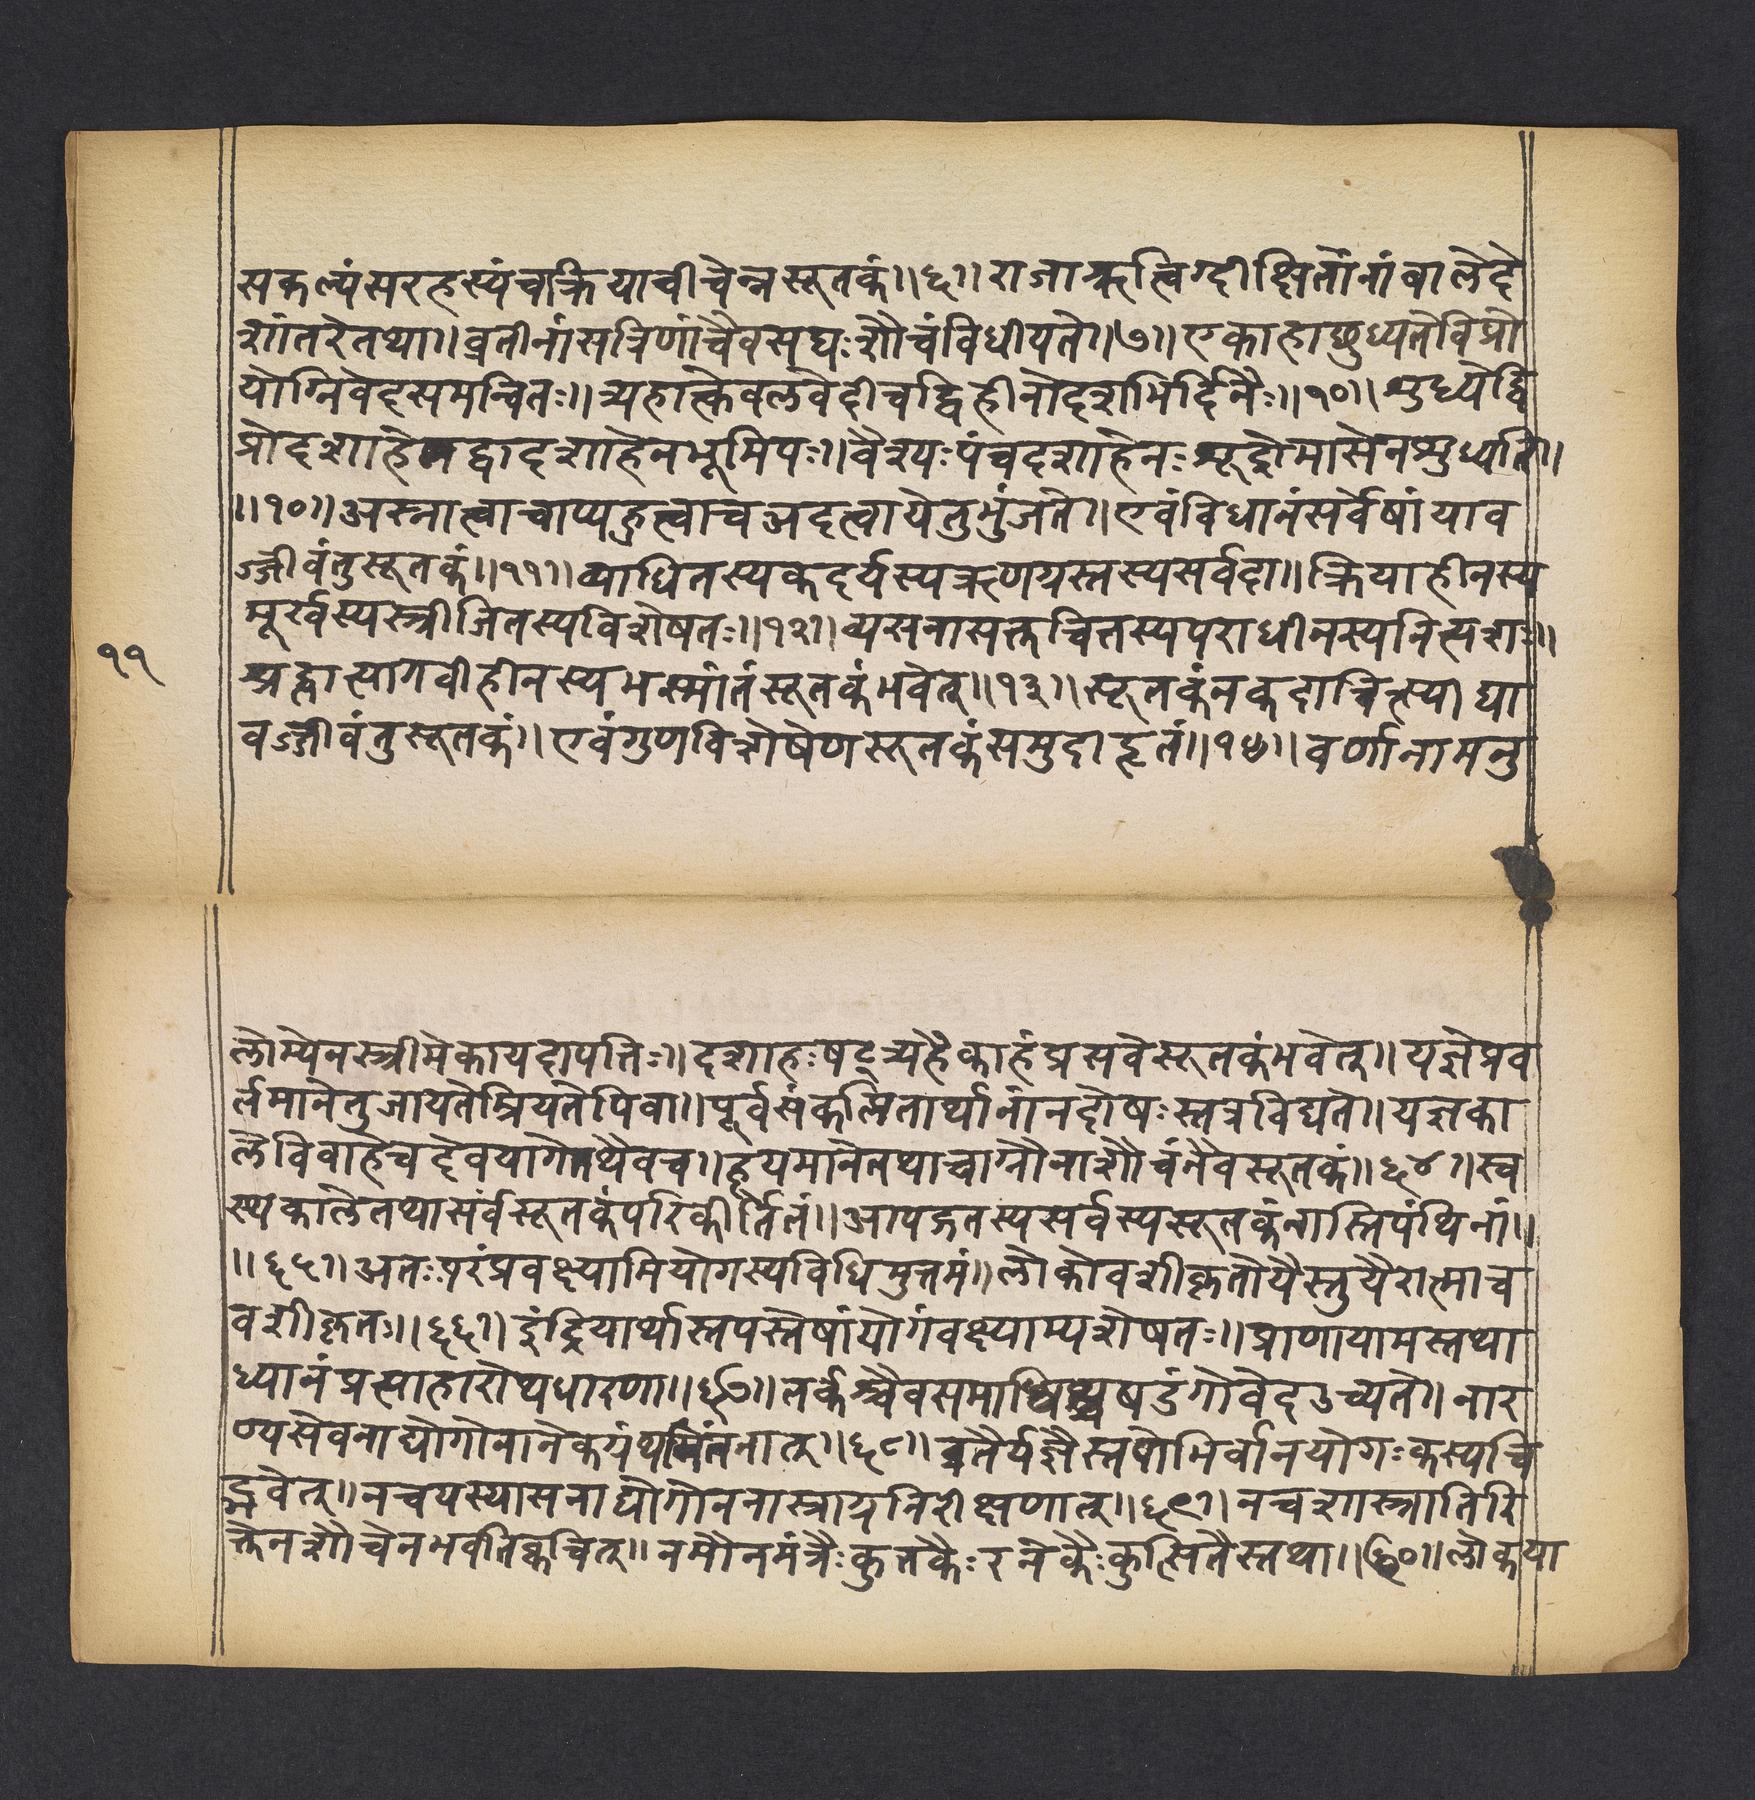 सकल्पंसरहस्यंचक्रियाचीचेन्नसूतकं।।६।।राजाऋत्विग्दीक्षितांनांबालेदे
शांतरेतथा।।व्रतीनांसत्रिणांचैवसद्यःशौचंविधीयते।।७।।एकाहाछुध्यतेविप्रो
योग्निवेदसमन्वितः।।त्र्यहात्केवलवेदीचद्विहीनोदशभिर्दिनैः।।१०।।शुध्येद्वि
प्रोदशाहेनद्वादशाहेनभूमिपः।।वैश्यःपंचदशाहेनःशूद्रोमासेनशुध्यति।।
।।१०।।अस्नात्वाचाप्यहुत्वाचअदत्वायेतुभुंजते।।एवंविधानंसर्वेषांयाव
ज्जीवंतुसूतकं।।११।।व्याधितस्यकदर्यस्यऋणग्रस्तस्यसर्वदा।।क्रियाहीनस्य
मूर्खस्यस्त्रीजितस्यविशेषतः।।१२।।व्यसनासक्तचित्तस्यपराधीनस्यनित्यशः।।
११
श्रद्धात्यागवीहीनस्यभस्मांतंसूतकंभवेत्।।१३।।सूतकंनकदाचित्स्याद्या
वज्जीवंतुसूतकं।।एवंगुणविशेषेणसूतकंसमुदाहृतं।।१४।।वर्णानामनु
लोम्येनस्त्रीमेकायदापतिः।।दशाहःषट्त्र्यहैकाहंप्रसवेसूतकंभवेत्।।यज्ञेप्रव
र्तमानेतुजायतेम्रियतेपिवा।।पूर्वसंकल्पितार्थानांनदोषःस्तत्रविद्यते।।यज्ञका
लेविवाहेचदेवयागेतथैवच।।हूयमानेतथाचाग्नौनाशौचंनैवसूतकं।।६४।।स्व
स्थकालेतथासंर्वसूतकंपरिकीर्तितं।।आपद्गतस्यसर्वस्यसूतकंनास्तिपंथिनां।।
।।६५।।अतःपरंप्रवक्ष्यामियोगस्यविधिमुत्तमं।।लोकोवशीकृतोयैस्तुयैरात्माच
वशीकृतः।।६६।।इंद्रियार्थास्तपस्तेषांयोगंवक्ष्याम्यशेषतः।।प्राणायामस्तथा
ध्यानंप्रत्याहारोथधारणा।।६७।।तर्कश्चैवसमाधिश्चषडंगोवेदउच्यते।।नार
ण्यसेवनाद्योगोनानेकग्रंथचिंतनात्।।६८।।व्रतैर्यज्ञैस्तपोभिर्वानयोगःकस्यचि
द्भवेत्।।नचपस्यासनाद्योगोननास्त्राग्रनिरीक्षणात्।।६९।।नचशास्त्रातिरि
क्तेनशौचेनभवतिक्वचित्।।नमौनमंत्रैःकुतकैःरनेकैःकुत्सितैस्तथा।।७०।।लोकया